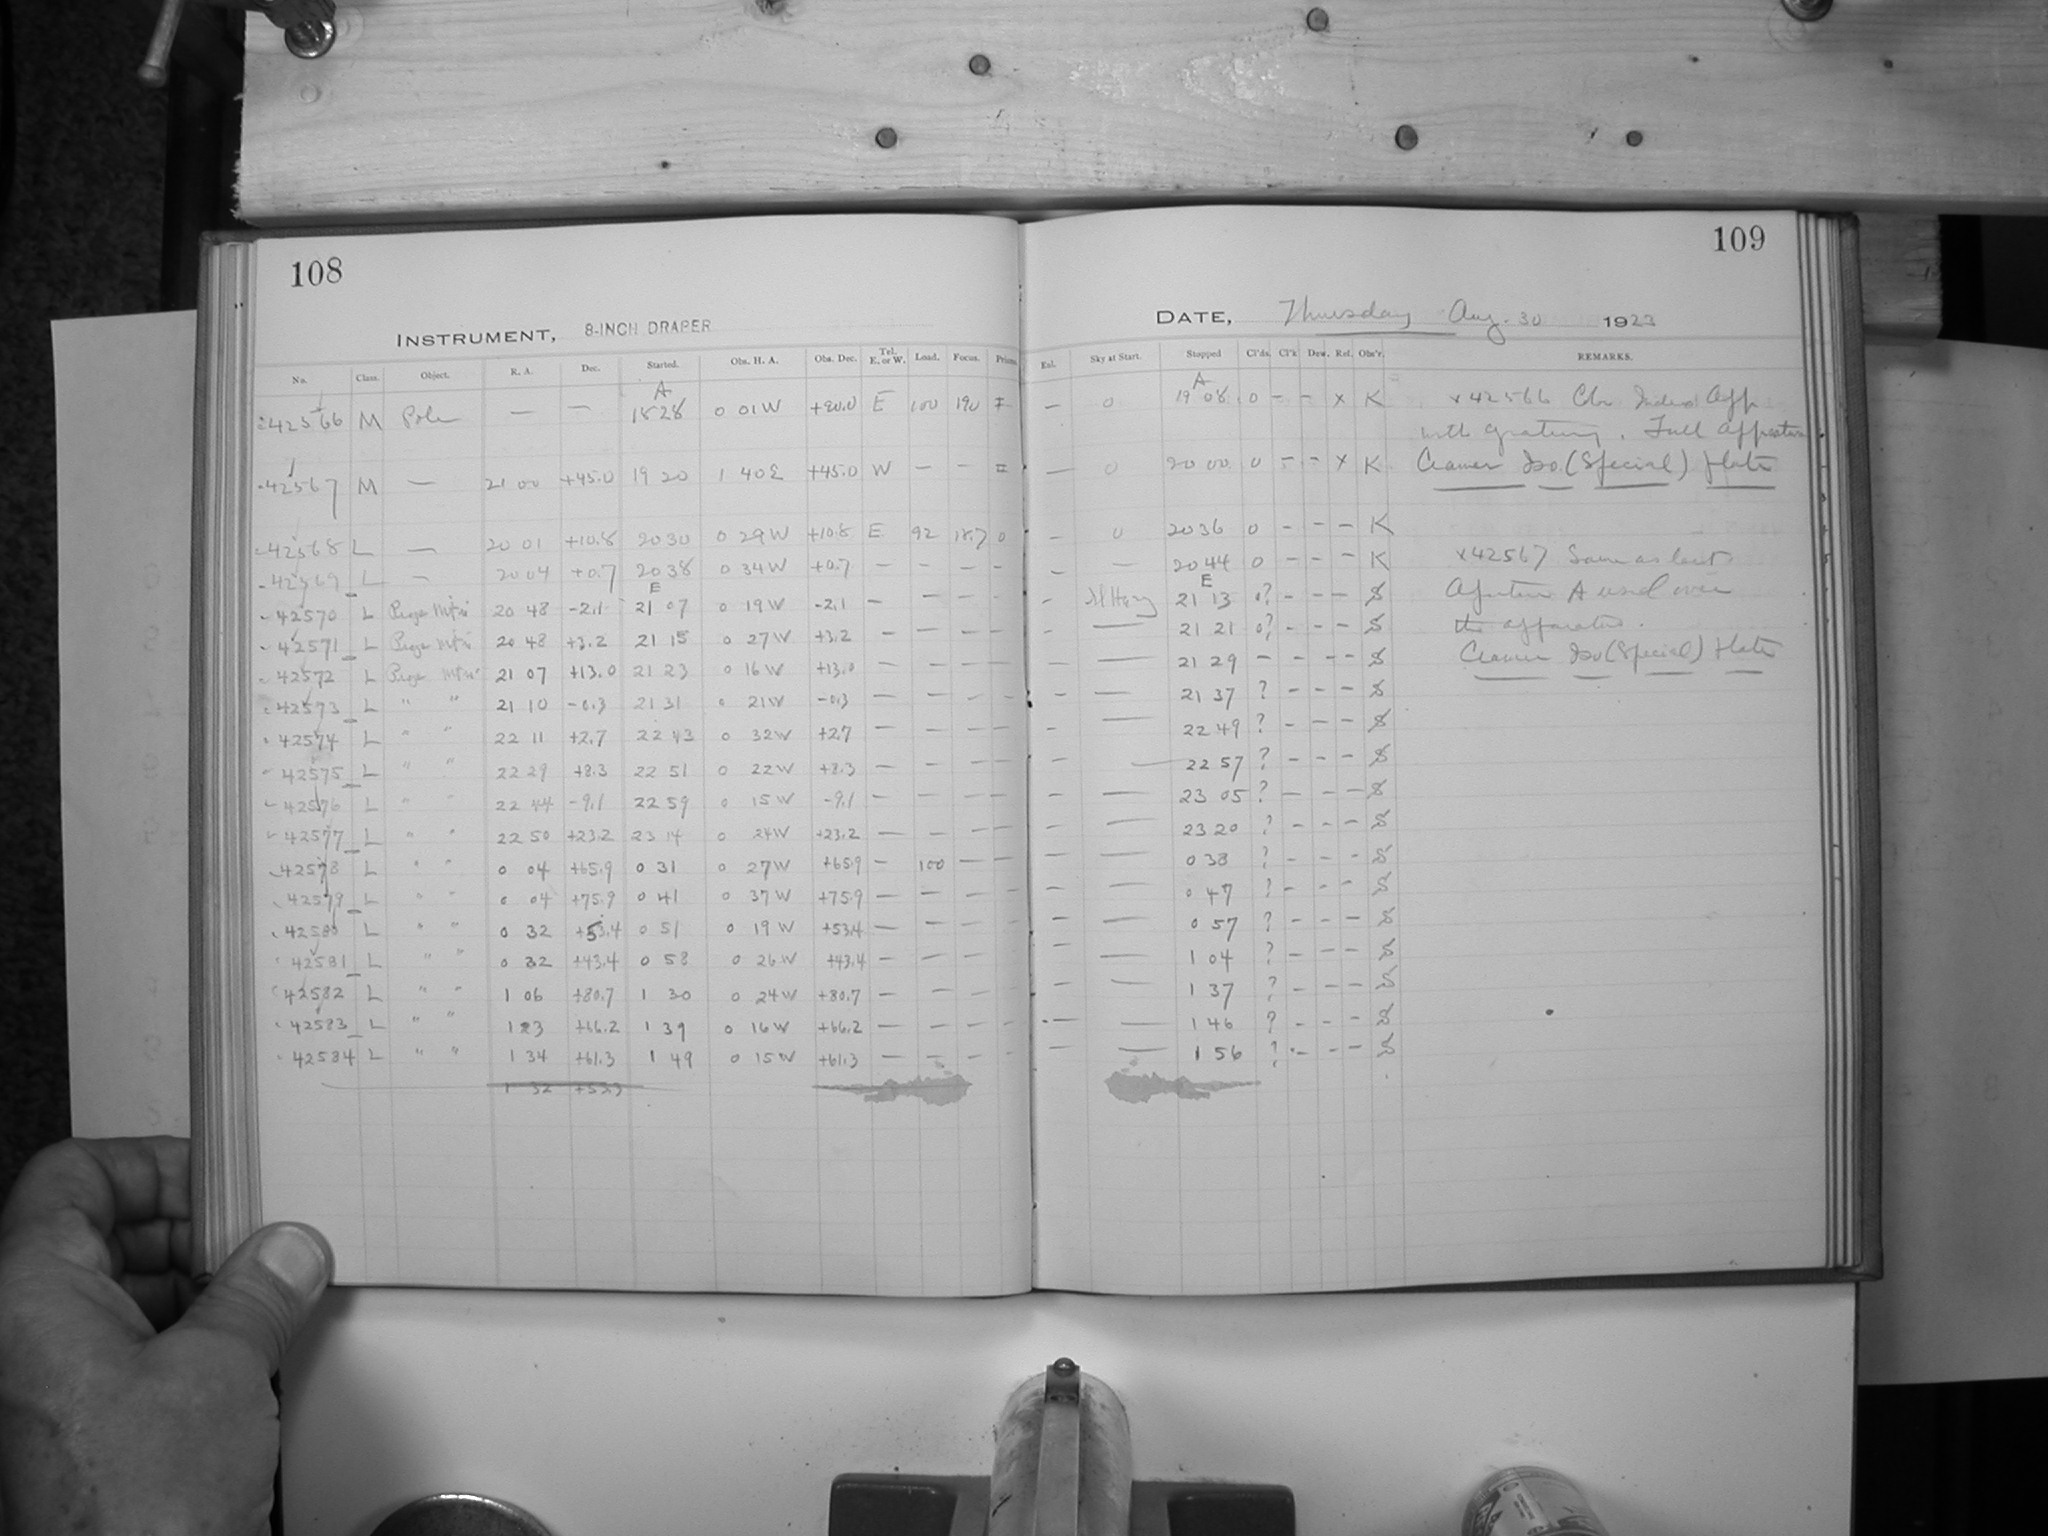 108
INSTRUMENT, 8-INCH DRAPER
No. Class. Object. R. A. Dec. Started. Obs. H. A. Obs. Dec. Tel. E. or W. Load. Focus. Prism
A
42566 M Pole — — 18 28 0 01 W +90.0 E 100 190 I
42567 M — 21 00 +45.0 19 20 1 40 E +45.0 W — — =
42568 L — 20 01 +10.8 20 30 0 29 W +10.8 E 92 18.7 0
42569 L — 20 04 +0.7 20 38 0 34 W +0.7 — — — -
E
42570 L 20 48 -2.1 21 07 0 19 W -2.1 — — — —
42571 L 20 48 +3.2 21 15 0 27 W +3.2 — — — —
42572 L 21 07 +13.0 21 23 0 16 W +13.0 — — — —
42573 L " " 21 10 -0.3 21 31 0 21 W -0.3 — — — —
42574 L " " 22 11 +2.7 22 43 0 32 W +2.7 — — — —
42575 L " " 22 29 +8.3 22 51 0 22 W +8.3 — — — —
42576 L " " 22 44 -9.1 22 59 0 15 W -9.1 — — — —
42577 L " " 22 50 +23.2 23 14 0 24 W +23.2 — — — —
42578 L " " 0 04 +65.9 0 31 0 27 W +65.9 — 100 — —
42579 L " " 0 04 +75.9 0 41 0 37 W +75.9 — — — —
42580 L " " 0 32 +53.4 0 51 0 19 W +53.4 — — — —
42581 L " " 0 32 +43.4 0 58 0 26 W +43.4 — — — —
42582 L " " 1 06 +80.7 1 30 0 24 W +80.7 — — — —
42583 L " " 1 23 +66.2 1 39 0 16 W +66.2 — — — —
42584 L " " 1 34 +61.3 1 49 0 15 W +61.3 — — — —
1 32
109
DATE, Thursday Aug. 30 1923
Exl. Sky at Start. Stopped Cl'ds. Cl'k Dew. Rel. Obs'r. REMARKS.
A
— 0 19 08 0 - - x K x42566 Index App
with grating. Full Apperture
— 0 20 00 0 - - x K Cramer Iso (Special) Plate
— 0 20 36 0 - - - K
— — 20 44 0 - - - K x42567 Same as last
E
— 21 13 0? - - - S Aperture A used over
— — 21 21 0? - - - S the apparatus.
— — 21 29 - - - - S Cramer Iso (Special) Plate
— — 21 37 ? - - - S
— — 22 49 ? - - - S
— — 22 57 ? - - - S
— — 23 05 ? - - - S
— — 23 20 ? - - - S
— — 0 38 ? - - - S
— — 0 47 ? - - - S
— — 0 57 ? - - - S
— — 1 04 ? - - - S
— — 1 37 ? - - - S
— — 1 46 ? - - - S
— — 1 56 ? - - - S